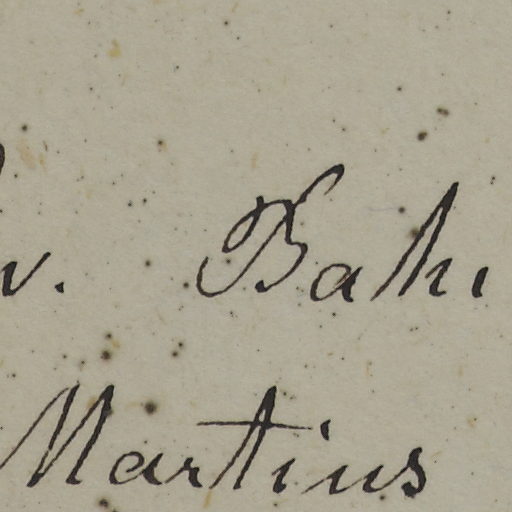 v. Bahi
Martius